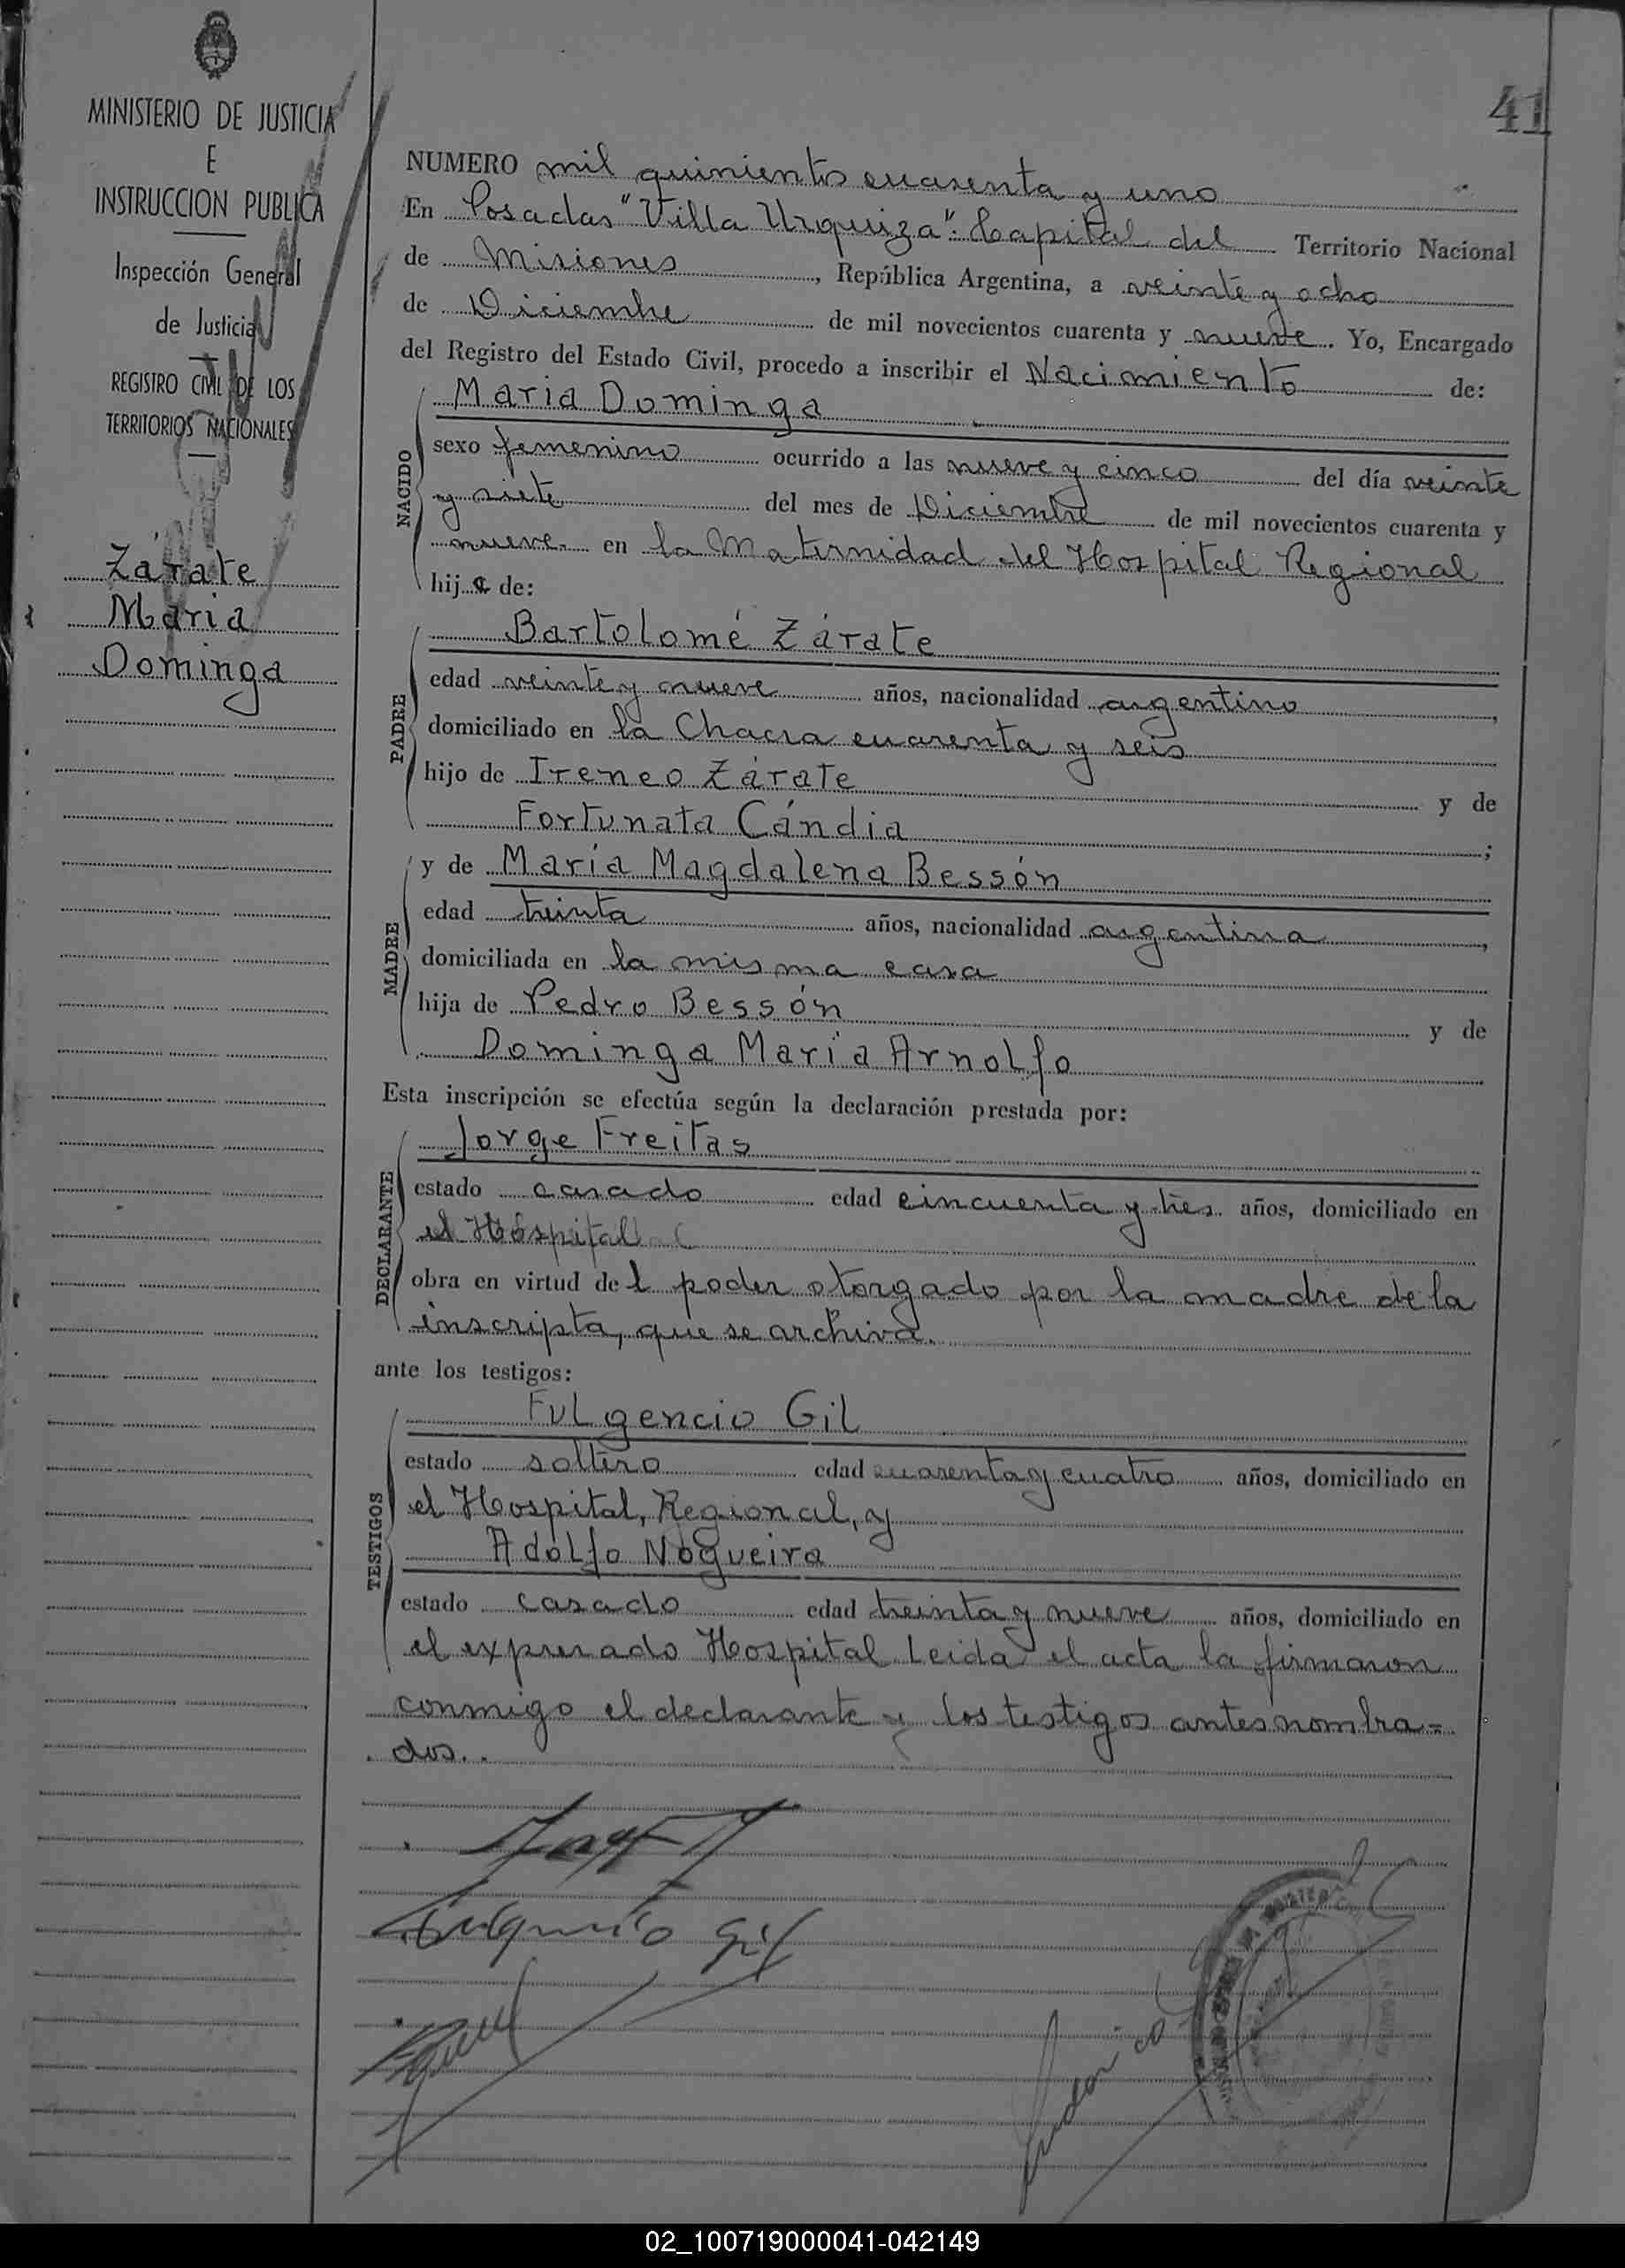 MINISTERIO DE JUSTICIA
E
INSTRUCCION PUBLICA
Inspección General
de Justicia
REGISTRO CIVIL DE LOS
TERRITORIOS NACIONALES
Zárate
Maria
Dominga
41
NUMERO mil quinientos cuarenta y uno
En Posadas "Villa Urquiza". Capital del Territorio Nacional
de Misiones, República Argentina, a veinte y ocho
de Diciembre de mil novecientos cuarenta y nueve. Yo, Encargado
del Registro del Estado Civil, procedo a inscribir el Nacimiento de:
NACIDO
Maria Dominga
sexo femenino ocurrido a las nueve y cinco del día veinte
y siete del mes de Diciembre de mil novecientos cuarenta y
nueve en la Maternidad del Hospital Regional
hija de:
PADRE
Bartolomé Zárate
edad veinte y nueve años, nacionalidad argentino,
domiciliado en la Chacra cuarenta y seis
hijo de Ireneo Zárate y de
Fortunata Cándia;
MADRE
y de María Magdalena Bessón
edad treinta años, nacionalidad argentina,
domiciliada en la misma casa
hija de Pedro Bessón y de
Dominga María Arnolfo
Esta inscripción se efectúa según la declaración prestada por:
DECLARANTE
Jorge Freitas
estado casado edad cincuenta y tres años, domiciliado en
el Hospital
obra en virtud del poder otorgado por la madre de la
inscripta, que se archiva.
ante los testigos:
TESTIGOS
Fulgencio Gil
estado soltero edad cuarenta y cuatro años, domiciliado en
el Hospital, Regional, y
Adolfo Nogueira
estado casado edad treinta y nueve años, domiciliado en
el expresado Hospital Leida el acta la firmaron
conmigo el declarante y los testigos antes nombra=
dos.
Fulgencio Gil
02_100719000041-042149